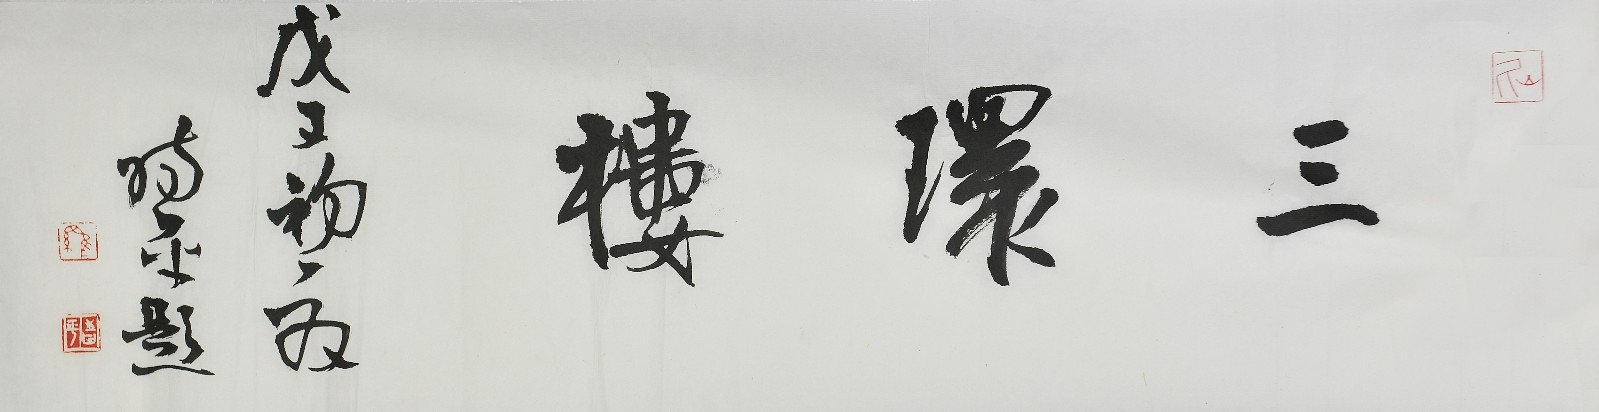 三環樓
戊子初夏
平題